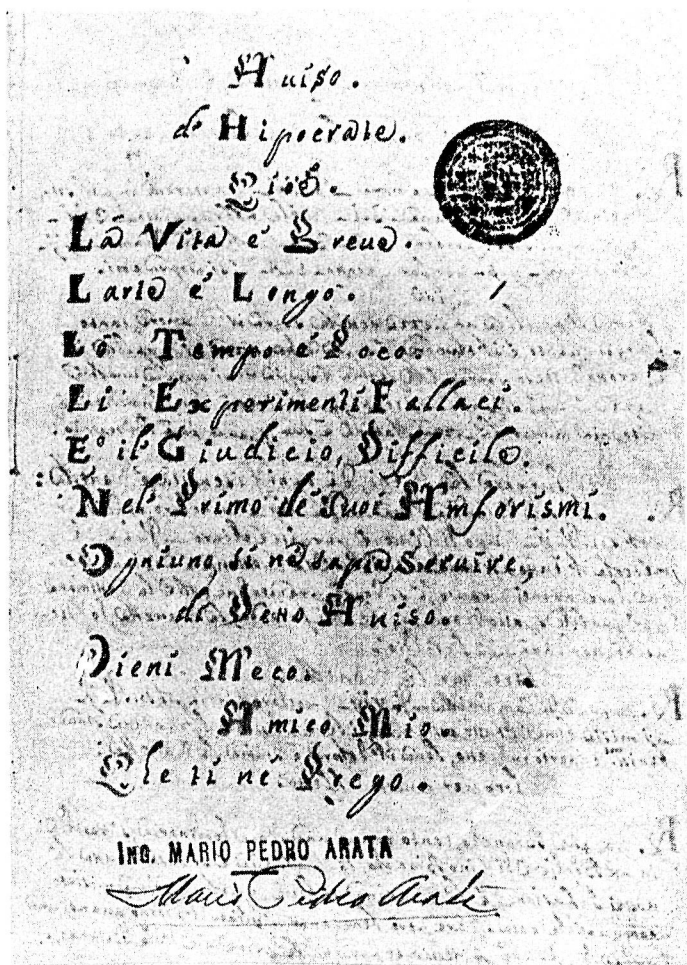 Auiso.
d' Hipocrate.
Cioè.
La Vita e' Breue.
L arte e' Longo.
Lo Tempo e' Poco.
Li Experimenti Fallaci.
E' il' Giudicio, Difficile.
Nel' Primo de' Suoi Amforismi.
Ogniuno, si ne sapia Seruire,
di Auiso.
Vieni Meco.
Amico Mio.
Che ti ne Prego.
ING. MARIO PEDRO ARATA
Mario Pedro Arata